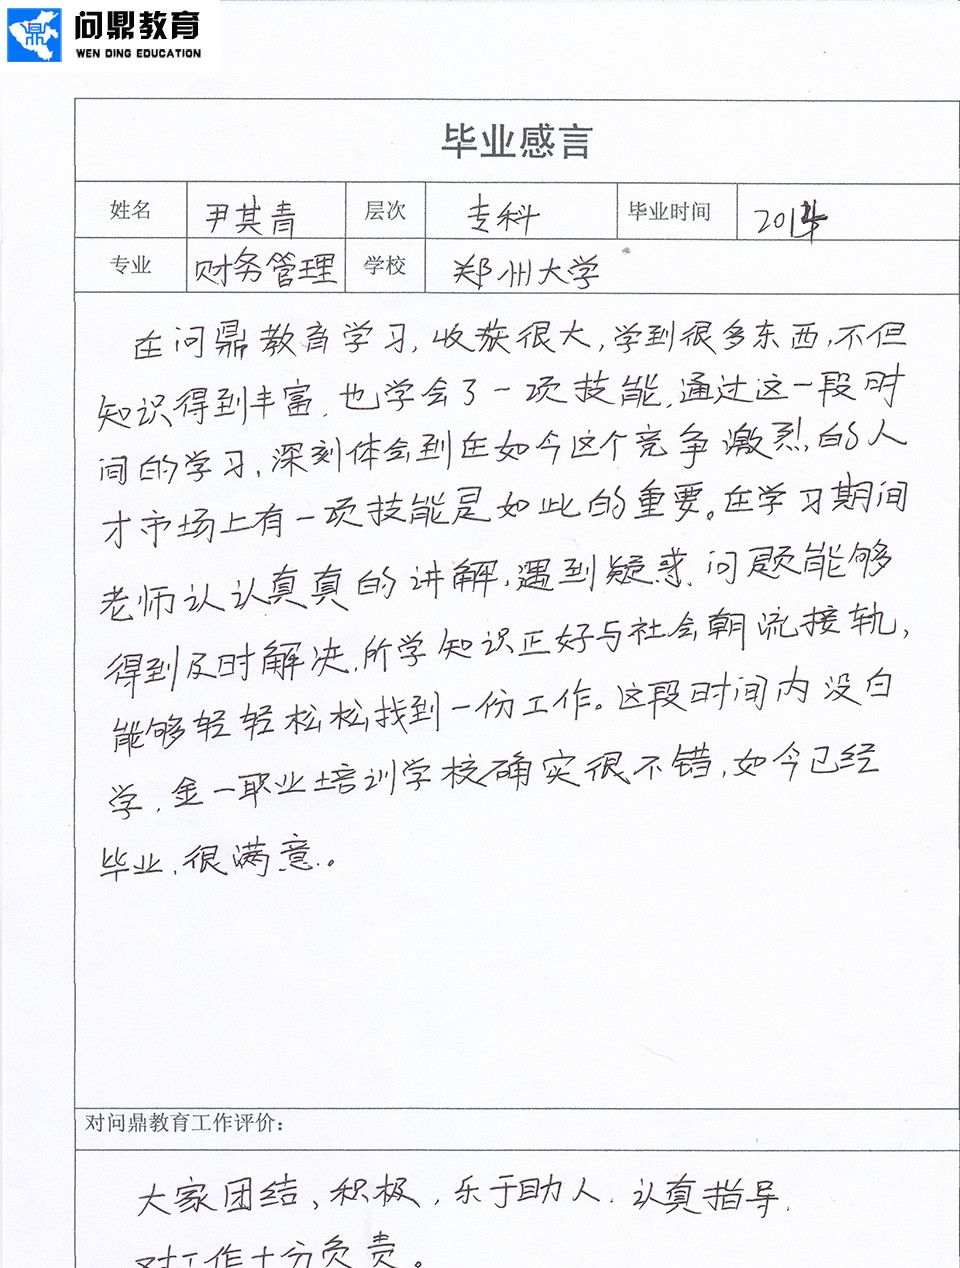 问鼎教育
WEN DING EDUCATION
毕业感言
姓名 尹其青 层次 专科 毕业时间
专业 财务管理 学校 郑州大学
在问鼎教育学习,收获很大,学到很多东西,不但
知识得到丰富,也学会了一项技能,通过这一段时
间的学习,深刻体会到在如今这个竞争激烈的人
才市场上有一项技能是如此的重要。在学习期间
老师认认真真的讲解,遇到疑惑、问题能够
得到及时解决,所学知识正好与社会朝流接轨,
能够轻轻松松找到一份工作。这段时间内没白
学,金一职业培训学校确实很不错,如今已经
毕业,很满意。
对问鼎教育工作评价:
大家团结、积极,乐于助人,认真指导,
对工作十分负责。